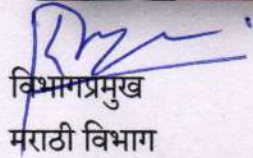 विभागप्रमुख
मराठी विभाग